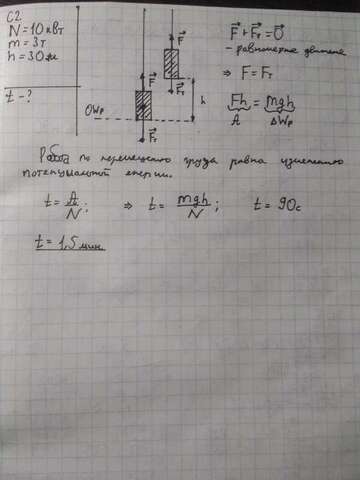 C2
N = 10 кВт
m = 3т
h = 30м
t - ?
F
F
Fт
h
0Wp
Fт
F⃗ + F⃗т = 0⃗
- равномерное движение
⇒ F = Fт
Fh = mgh
A ΔWp
Работа по перемещению груза равна изменению
потенциальной енергии.
t = A/N; ⇒ t = mgh/N; t = 90с
t = 1,5 мин.